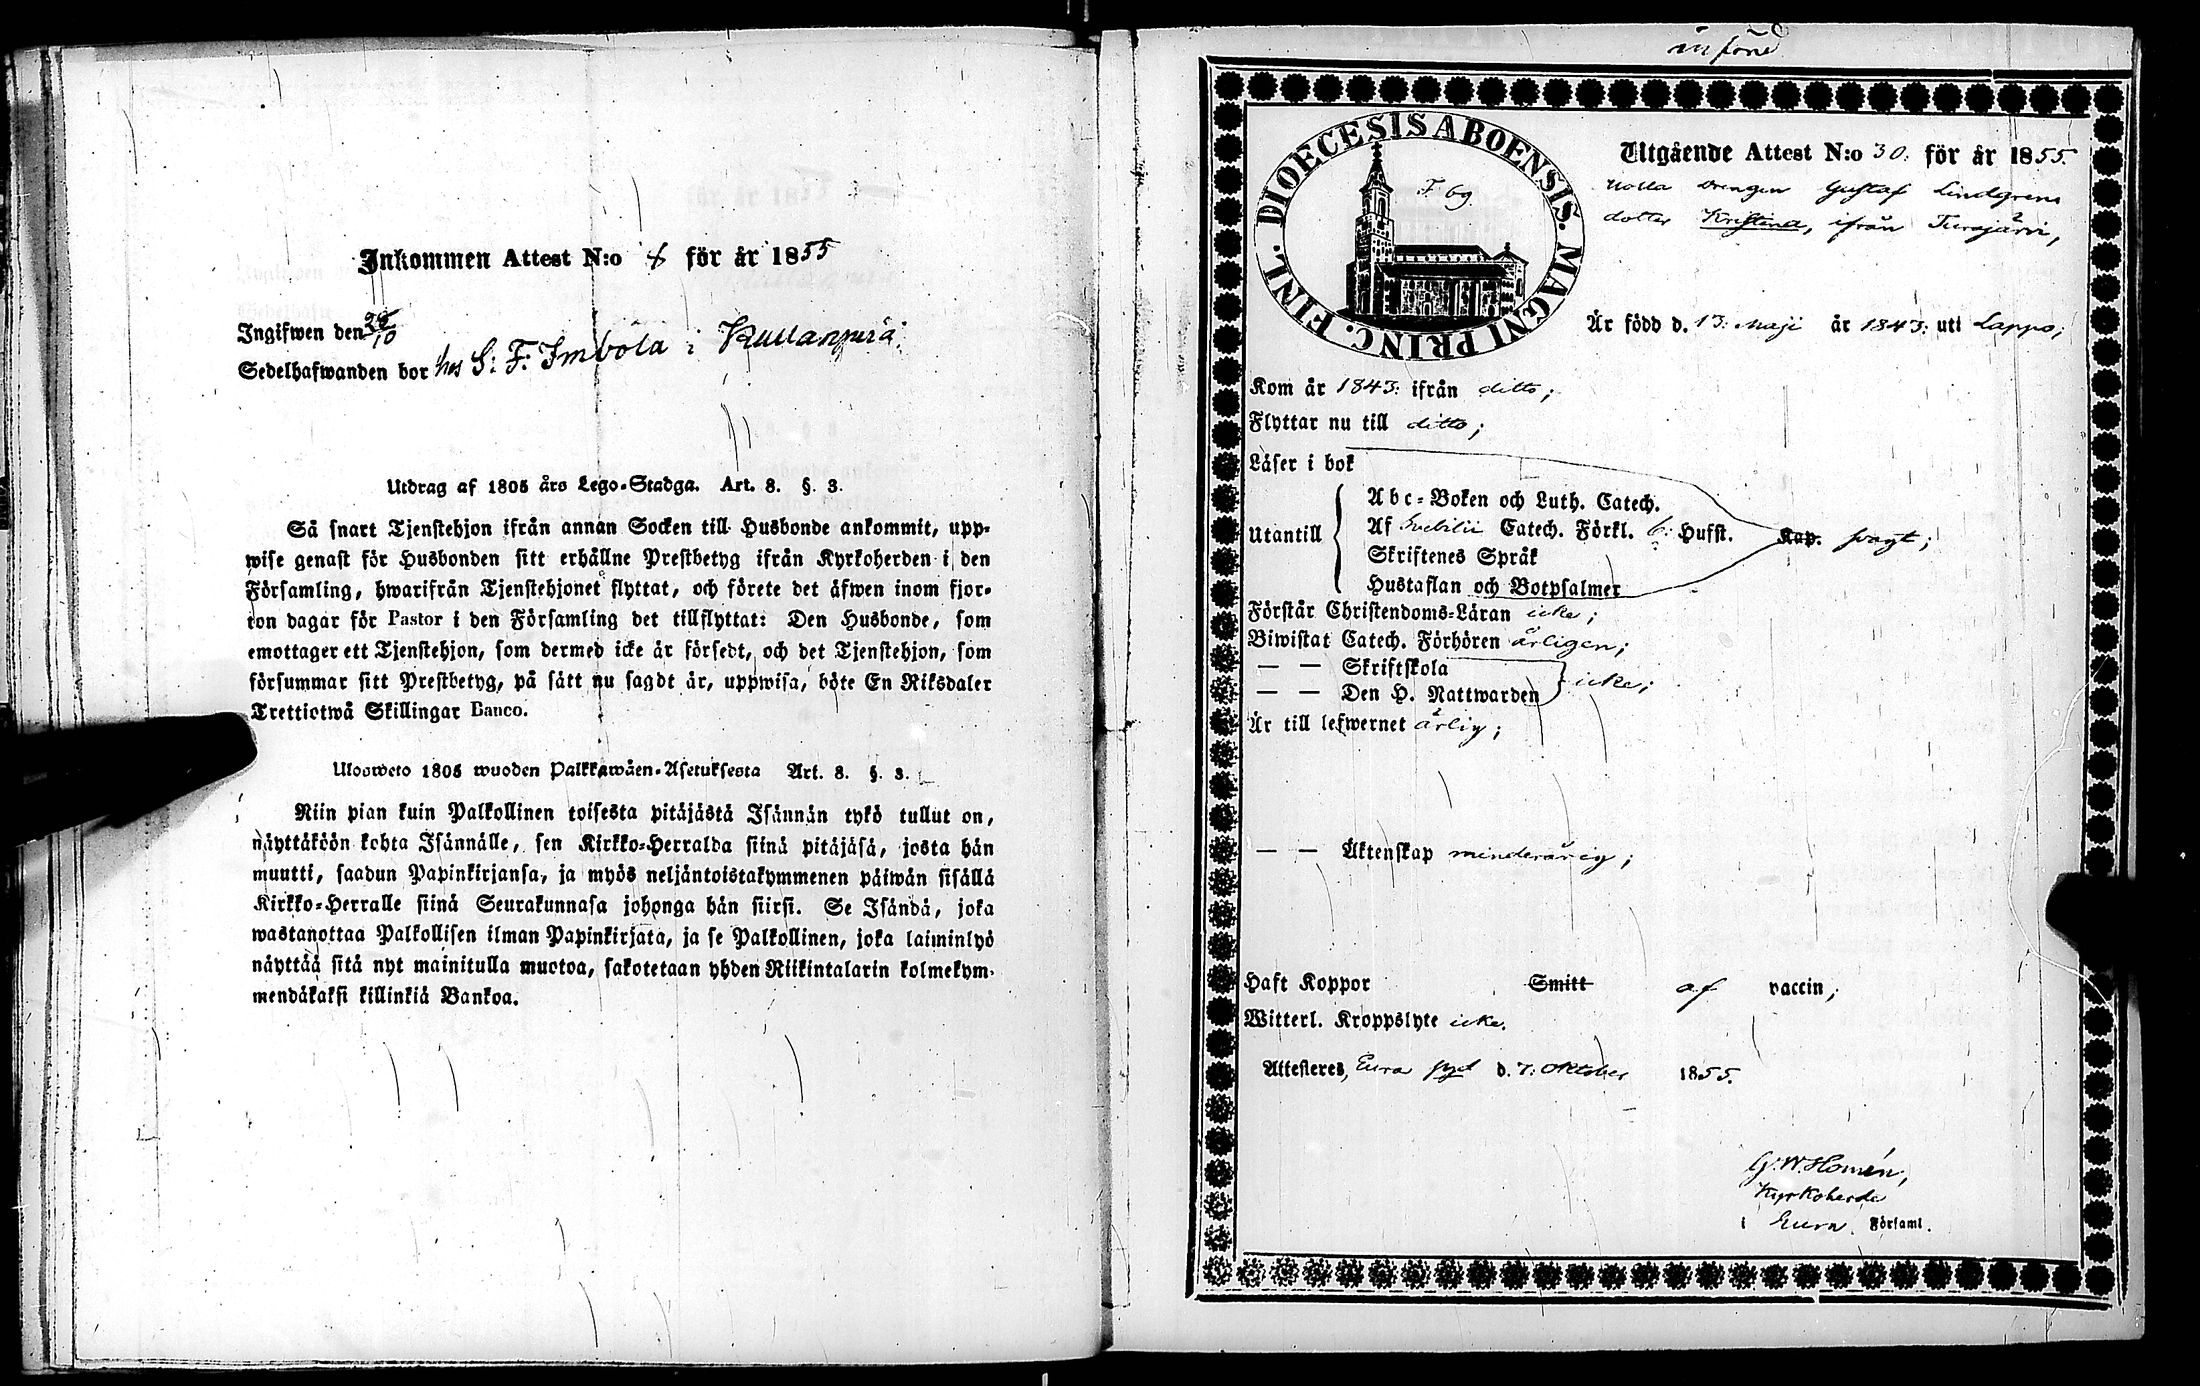 Inkommen Attest N:o 8 för år 1855
Ingifwen den 28/10
Sedelhafwanden bor hos S: F: Imböla i Kullanperä:
Utdrag af 1805 års Lego-Stadga. Art. 8. §. 3.
Så snart Tjenstehjon ifrån annan Socken till Husbonde ankommit, upp-
wise genast för Husbonden sitt erhållne Prestbetyg ifrån Kyrkoherden i den
Församling, hwarifrån Tjenstehjonet flyttat, och förete det äfwen inom fjor-
ton dagar för Pastor i den Församling det tillflyttat: Den Husbonde, som
emottager ett Tjenstehjon, som dermed icke är försedt, och det Tjenstehjon, som
försummar sitt Prestbetyg, på sätt nu sagdt är, uppwisa, böte En Riksdaler
Trettiotwå Skillingar Banco.
Ulosweto 1805 wuoden Palkkawäen-Asetuksesta Art. 8. §. 3.
Niin pian kuin Palkollinen toisesta pitäjästä Isännän tykö tullut on,
näyttäköön kohta Isännälle, sen Kirkko-Herralda siinä pitäjäsä, josta hän
muutti, saadun Papinkirjansa, ja myös neljäntoistakymmenen päiwän sisällä
Kirkko-Herralle siinä Seurakunnasa johonga hän siirsi. Se Isändä, joka
wastanottaa Palkollisen ilman Papinkirjata, ja se Palkollinen, joka laiminlyö
näyttää sitä nyt mainitulla muotoa, sakotetaan yhden Riikintalarin kolmekym-
mendäkaksi killinkiä Bankoa.
införd
DIOECESIS ABOENSIS. MAGNI PRINC. FINL.
F 69.
Utgående Attest N:o 30. för år 1855.
Notta Drengen Gustaf Lindgrens
dotter Kristina, ifrån Turajärvi,
Är född d. 13: Maji år 1843: uti Lappo;
Kom år 1843: ifrån ditto;
Flyttar nu till ditto;
Läser i bok
Abc-Boken och Luth. Catech.
Utantill Af Svebilii Catech. Förkl. 6: Hufst. Kap. svagt;
Skriftenes Språk
Hustaflan och Botpsalmer
Förstår Christendoms-Läran icke;
Biwistat Catech. Förhören årligen;
— — Skriftskola
— — Den H. Nattwarden icke;
Är till lefwernet ärlig;
— — Äktenskap minderårig;
Haft Koppor Smitt af vaccin;
Witterl. Kroppslyte icke.
Attesteres, Eura pgd d. 7: Oktober 1855.
G. W. Homén,
Kyrkoherde
i Eura Församl.